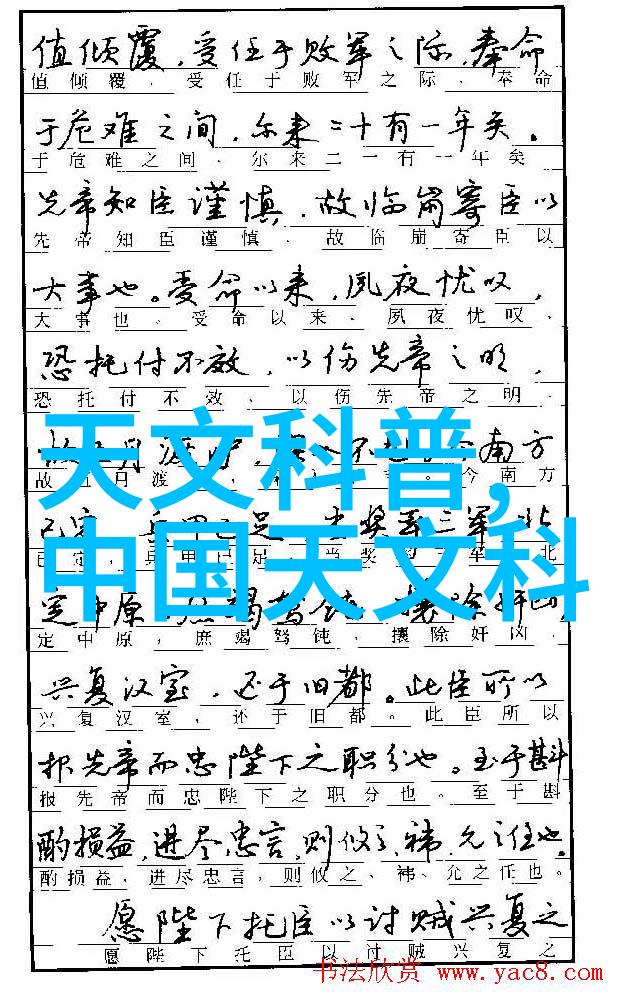 值倾覆,受任于败军之际,奉命
值倾覆,受任于败军之际,奉命
于危难之间,尔来二十有一年矣。
于危难之间,尔来二一有一年矣
先帝知臣谨慎,故临崩寄臣以
先帝知臣谨慎,故临崩寄臣以
大事也。受命以来,夙夜忧叹,
大事也。受命以来,夙夜忧叹,
恐托付不效,以伤先帝之明,
恐托付不效,以伤先帝之明,
月渡 不 南方
故 渡 今南方
天文科普,
兵甲已足 奖 三军 北
已定,兵甲已足,当奖 三军 北
中国天文科
定中原 竭驽钝 攘除奸凶
定中原,庶竭驽钝,攘除奸凶,
兴复汉室,还于旧都。此臣所以
兴复汉室,还于旧都。此臣所以
报先帝而忠陛下之职分也。至于斟
报先帝而忠陛下之职分也。至于斟
酌损益,进尽忠言,则攸之、祎、允之任也。
酌损益,进尽忠言,则攸之、祎、允之任也。
愿陛下托臣以讨贼兴复之
愿陛下托臣以讨贼兴复之
书法欣赏 www.yac8.com